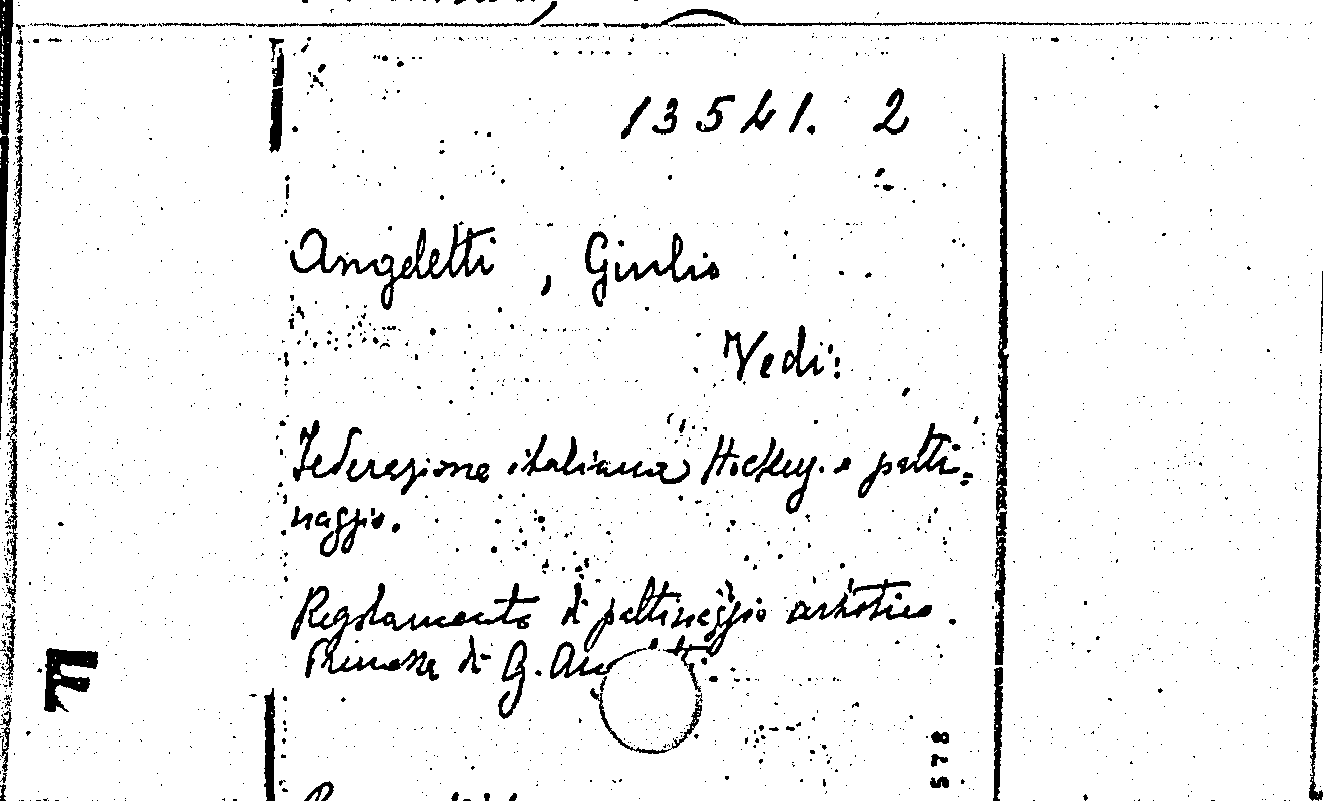 13541. 2
Angeletti, Giulio
Vedi:
Federazione italiana Hockey e patti=
naggio.
Regolamento di pattinaggio artistico.
Premessa di G. An
F
578